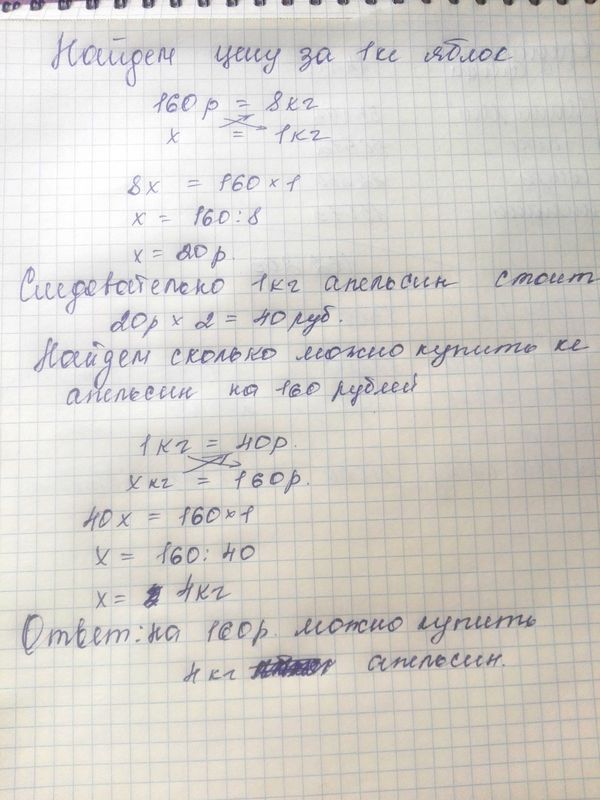 Найдем цену за 1кг яблок
160р = 8кг
х = 1кг
8х = 160 × 1
х = 160 : 8
х = 20р.
Следовательно 1кг апельсин стоит
20р × 2 = 40руб.
Найдем сколько можно купить кг
апельсин на 160 рублей
1кг = 40р.
х кг = 160р.
40х = 160 × 1
х = 160 : 40
х = 4кг
Ответ: на 160р. можно купить
4кг апельсин.